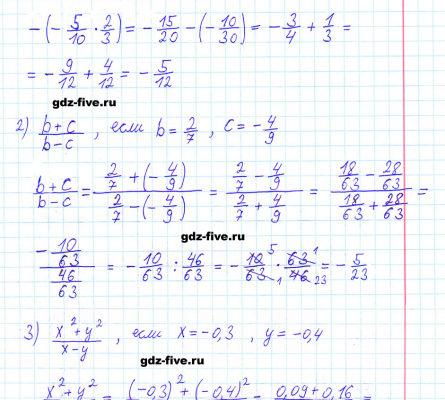 -(-5/10 · 2/3) = -15/20 - (-10/30) = -3/4 + 1/3 =
= -9/12 + 4/12 = -5/12
gdz-five.ru
2) (b+c)/(b-c) , если b = 2/7 , c = -4/9
(b+c)/(b-c) = (2/7 + (-4/9))/(2/7 - (-4/9)) = (2/7 - 4/9)/(2/7 + 4/9) = (18/63 - 28/63)/(18/63 + 28/63) =
gdz-five.ru
(-10/63)/(46/63) = -10/63 : 46/63 = -10 5/63 1 · 63 1/46 23 = -5/23
3) (x²+y²)/(x-y) , если x = -0,3 , y = -0,4
gdz-five.ru
x²+y² = (-0,3)²+(-0,4)² = 0,09+0,16 =